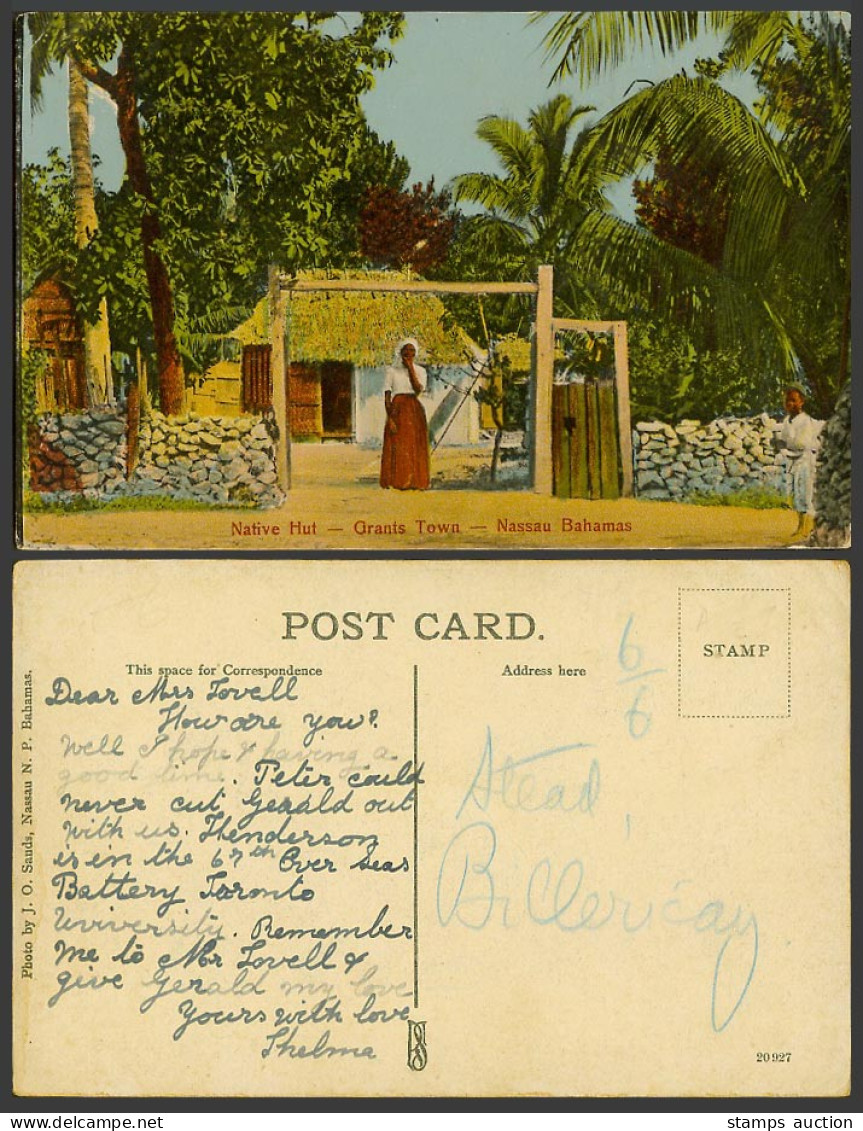 Native Hut — Grants Town — Nassau Bahamas
POST CARD.
This space for Correspondence
Address here
STAMP
Photo by J. O. Sauds, Nassau N. P. Bahamas.
Dear Mrs Lovell
How are you?
Well I hope & having a
good time. Peter could
never cut Gerald out
with us. Henderson
is in the 67th Over Seas
Battery Toronto
University. Remember
me to Mr Lovell &
give Gerald my love
Yours with love
Thelma
6/6
Stead,
Billericay
20927
stamps auction